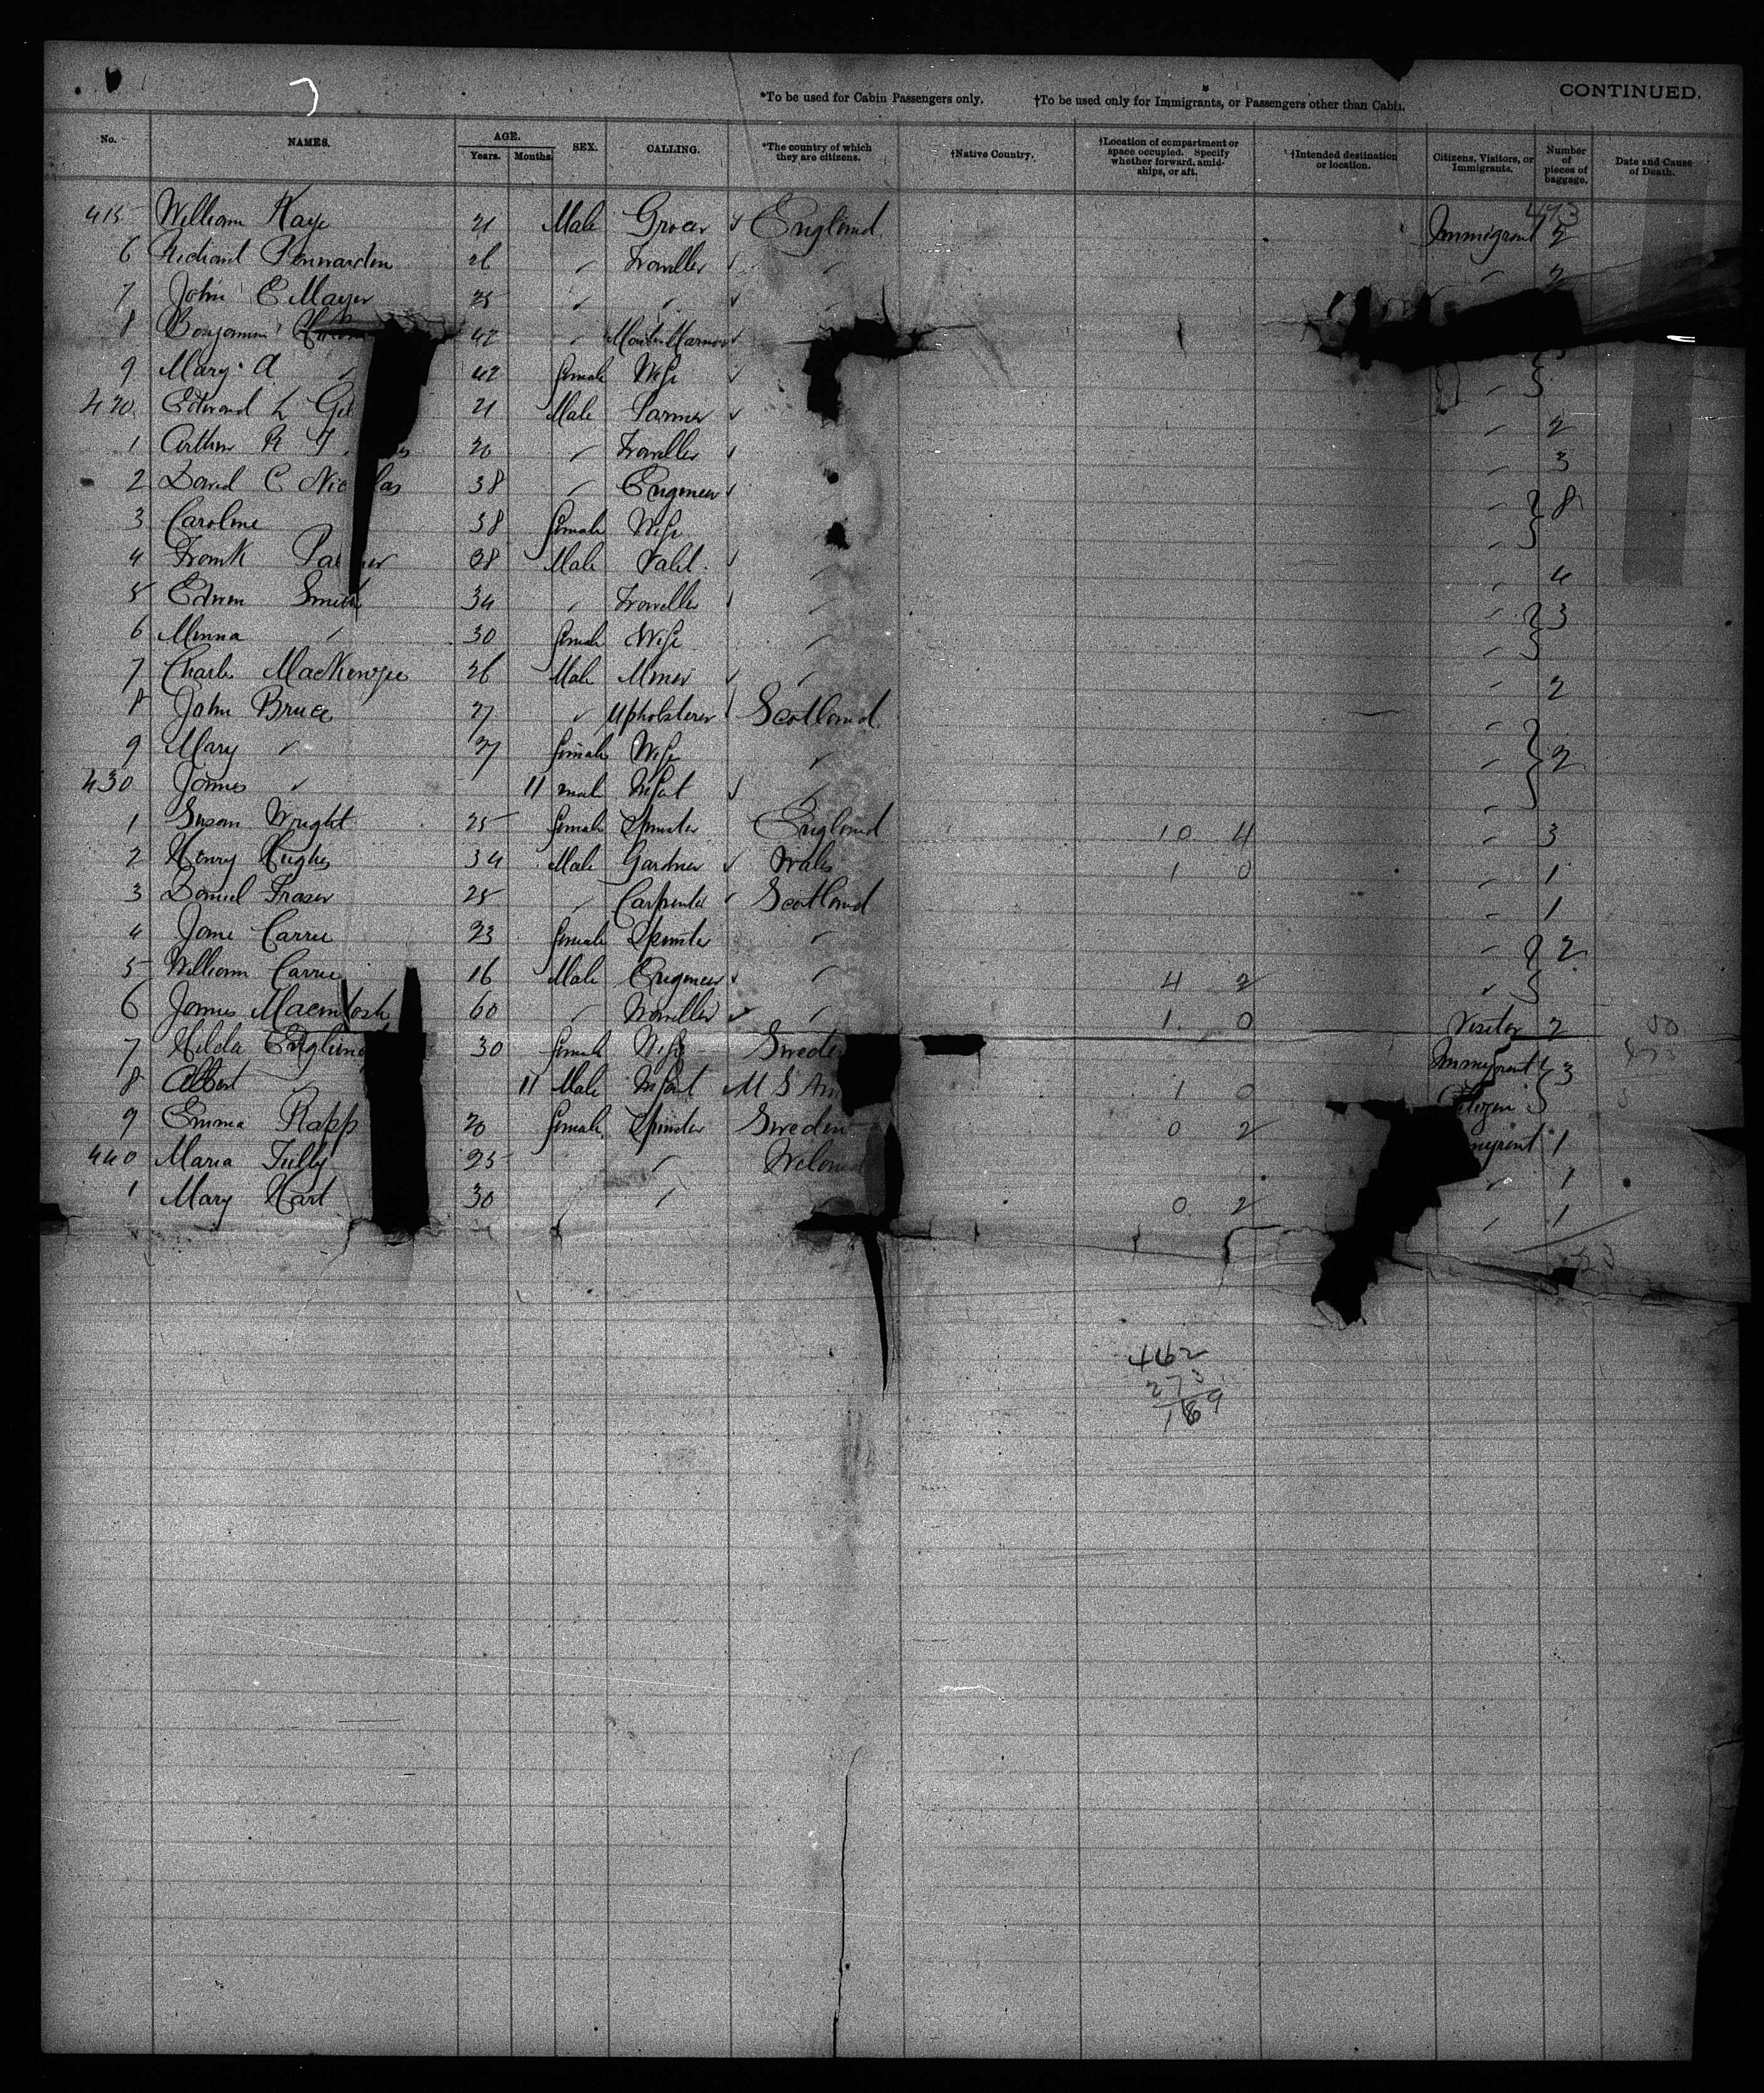 CONTINUED.
*To be used for Cabin Passengers only. †To be used only for Immigrants, or Passengers other than Cabin.
No. NAMES. AGE. Years. Months. SEX. CALLING. *The country of which they are citizens. †Native Country. †Location of compartment or space occupied. Specify whether forward, amidships, or aft. †Intended destination or location. Citizens, Visitors, or Immigrants. Number of pieces of baggage. Date and Cause of Death.
415 William Kaye 21 Male Grocer ✓ England Immigrant 2
6 Richard Pennarden 26 " Traveller ✓ " " 2
7 John E Mayer 25 " " ✓
8 Benjamin 42 " ✓
9 Mary A " 42 female Wife ✓ "
420 Edward L 21 Male Farmer ✓ " 2
1 Arthur R 20 " Traveller ✓ " 3
2 David C Nic las 38 " Engineer ✓ " 8
3 Caroline 38 female Wife "
4 Frank Pa er 38 Male Valet ✓ " " 4
5 Edwin Smith 34 " Traveller ✓ " " 3
6 Minna " 30 female Wife " "
7 Charles MacKenzie 26 Male Miner ✓ " " 2
8 John Bruce 27 " Upholsterer Scotland "
9 Mary " 27 female Wife " " 2
430 James " 11 male Infant ✓ " "
1 Susan Wright 25 female Spinster England 10 4 " 3
2 Henry Hughes 34 Male Gardner ✓ Wales 1 0 " 1
3 Daniel Fraser 25 " Carpenter ✓ Scotland " 1
4 Jane Carrie 23 female Spinster " " 2
5 William Carrie 16 Male Engineer ✓ " 4 2 "
6 James Macintosh 60 " Traveller ✓ " 1 0 Visitor 2
7 Hilda Englund 30 female Wife Swede Immigrant 3
8 Albert " 11 Male Infant U S Am 1 0 Citizen
9 Emma Rapp 20 female Spinster Sweden 0 2 migrant 1
440 Maria Tully 25 " Ireland " 1
1 Mary Hart 30 " 0 2 " 1
462
273
189